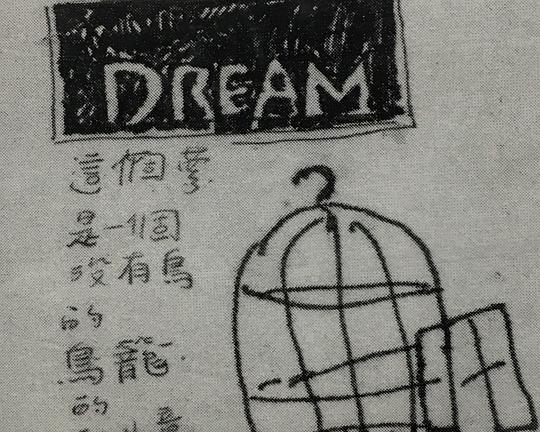 DREAM
這個夢
是一個
沒有鳥
的
鳥籠
的